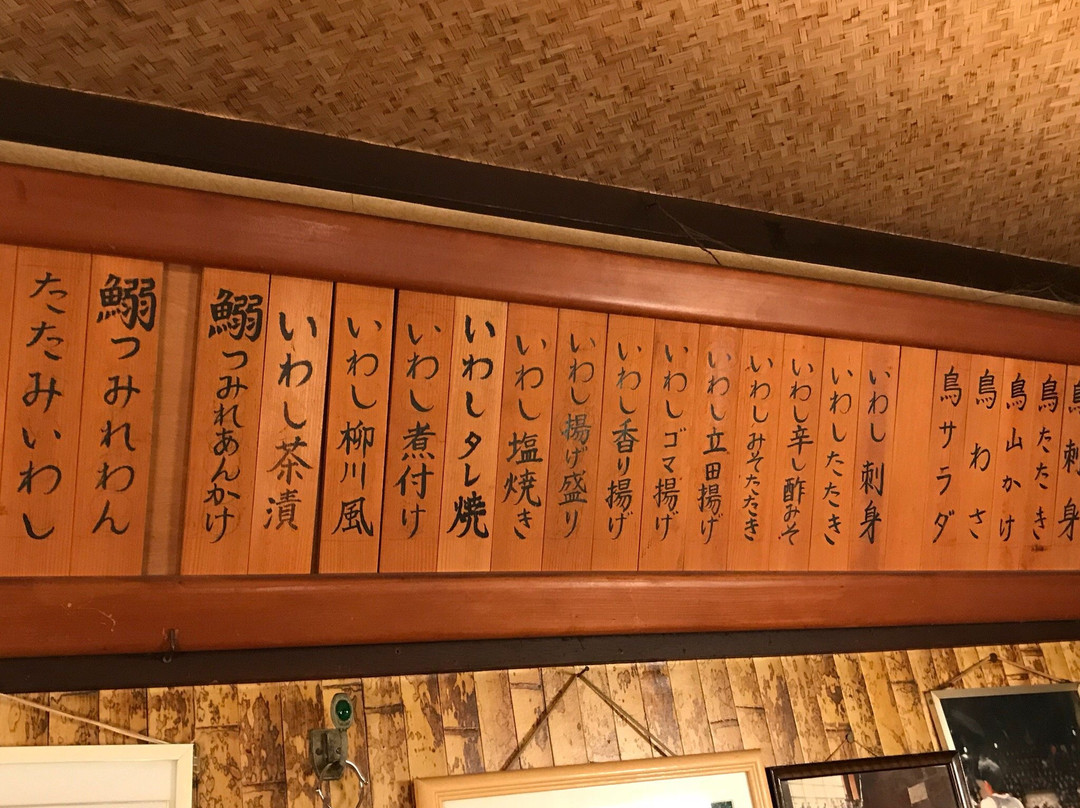 鳥刺身
鳥たたき
鳥山かけ
鳥わさ
鳥サラダ
いわし刺身
いわしたたき
いわし辛し酢みそ
いわしみそたたき
いわし立田揚げ
いわしゴマ揚げ
いわし香り揚げ
いわし揚げ盛り
いわし塩焼き
いわしタレ焼
いわし煮付け
いわし柳川風
いわし茶漬
鰯つみれあんかけ
鰯つみれわん
たたみいわし